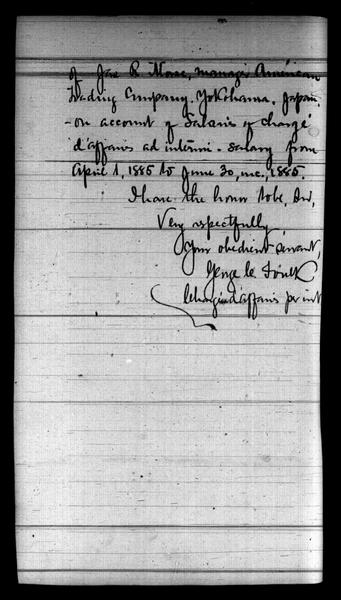 of Jas R. Morse, manager American
Trading Company, Yokohama, Japan.
- on account of Salaries of chargé
d'affaires ad interim - salary from
April 1, 1885 to June 30, inc., 1885.
I have the honor to be, Sir,
Very respectfully
Your obedient servant,
George C. Foulk
Chargé d'affaires per int